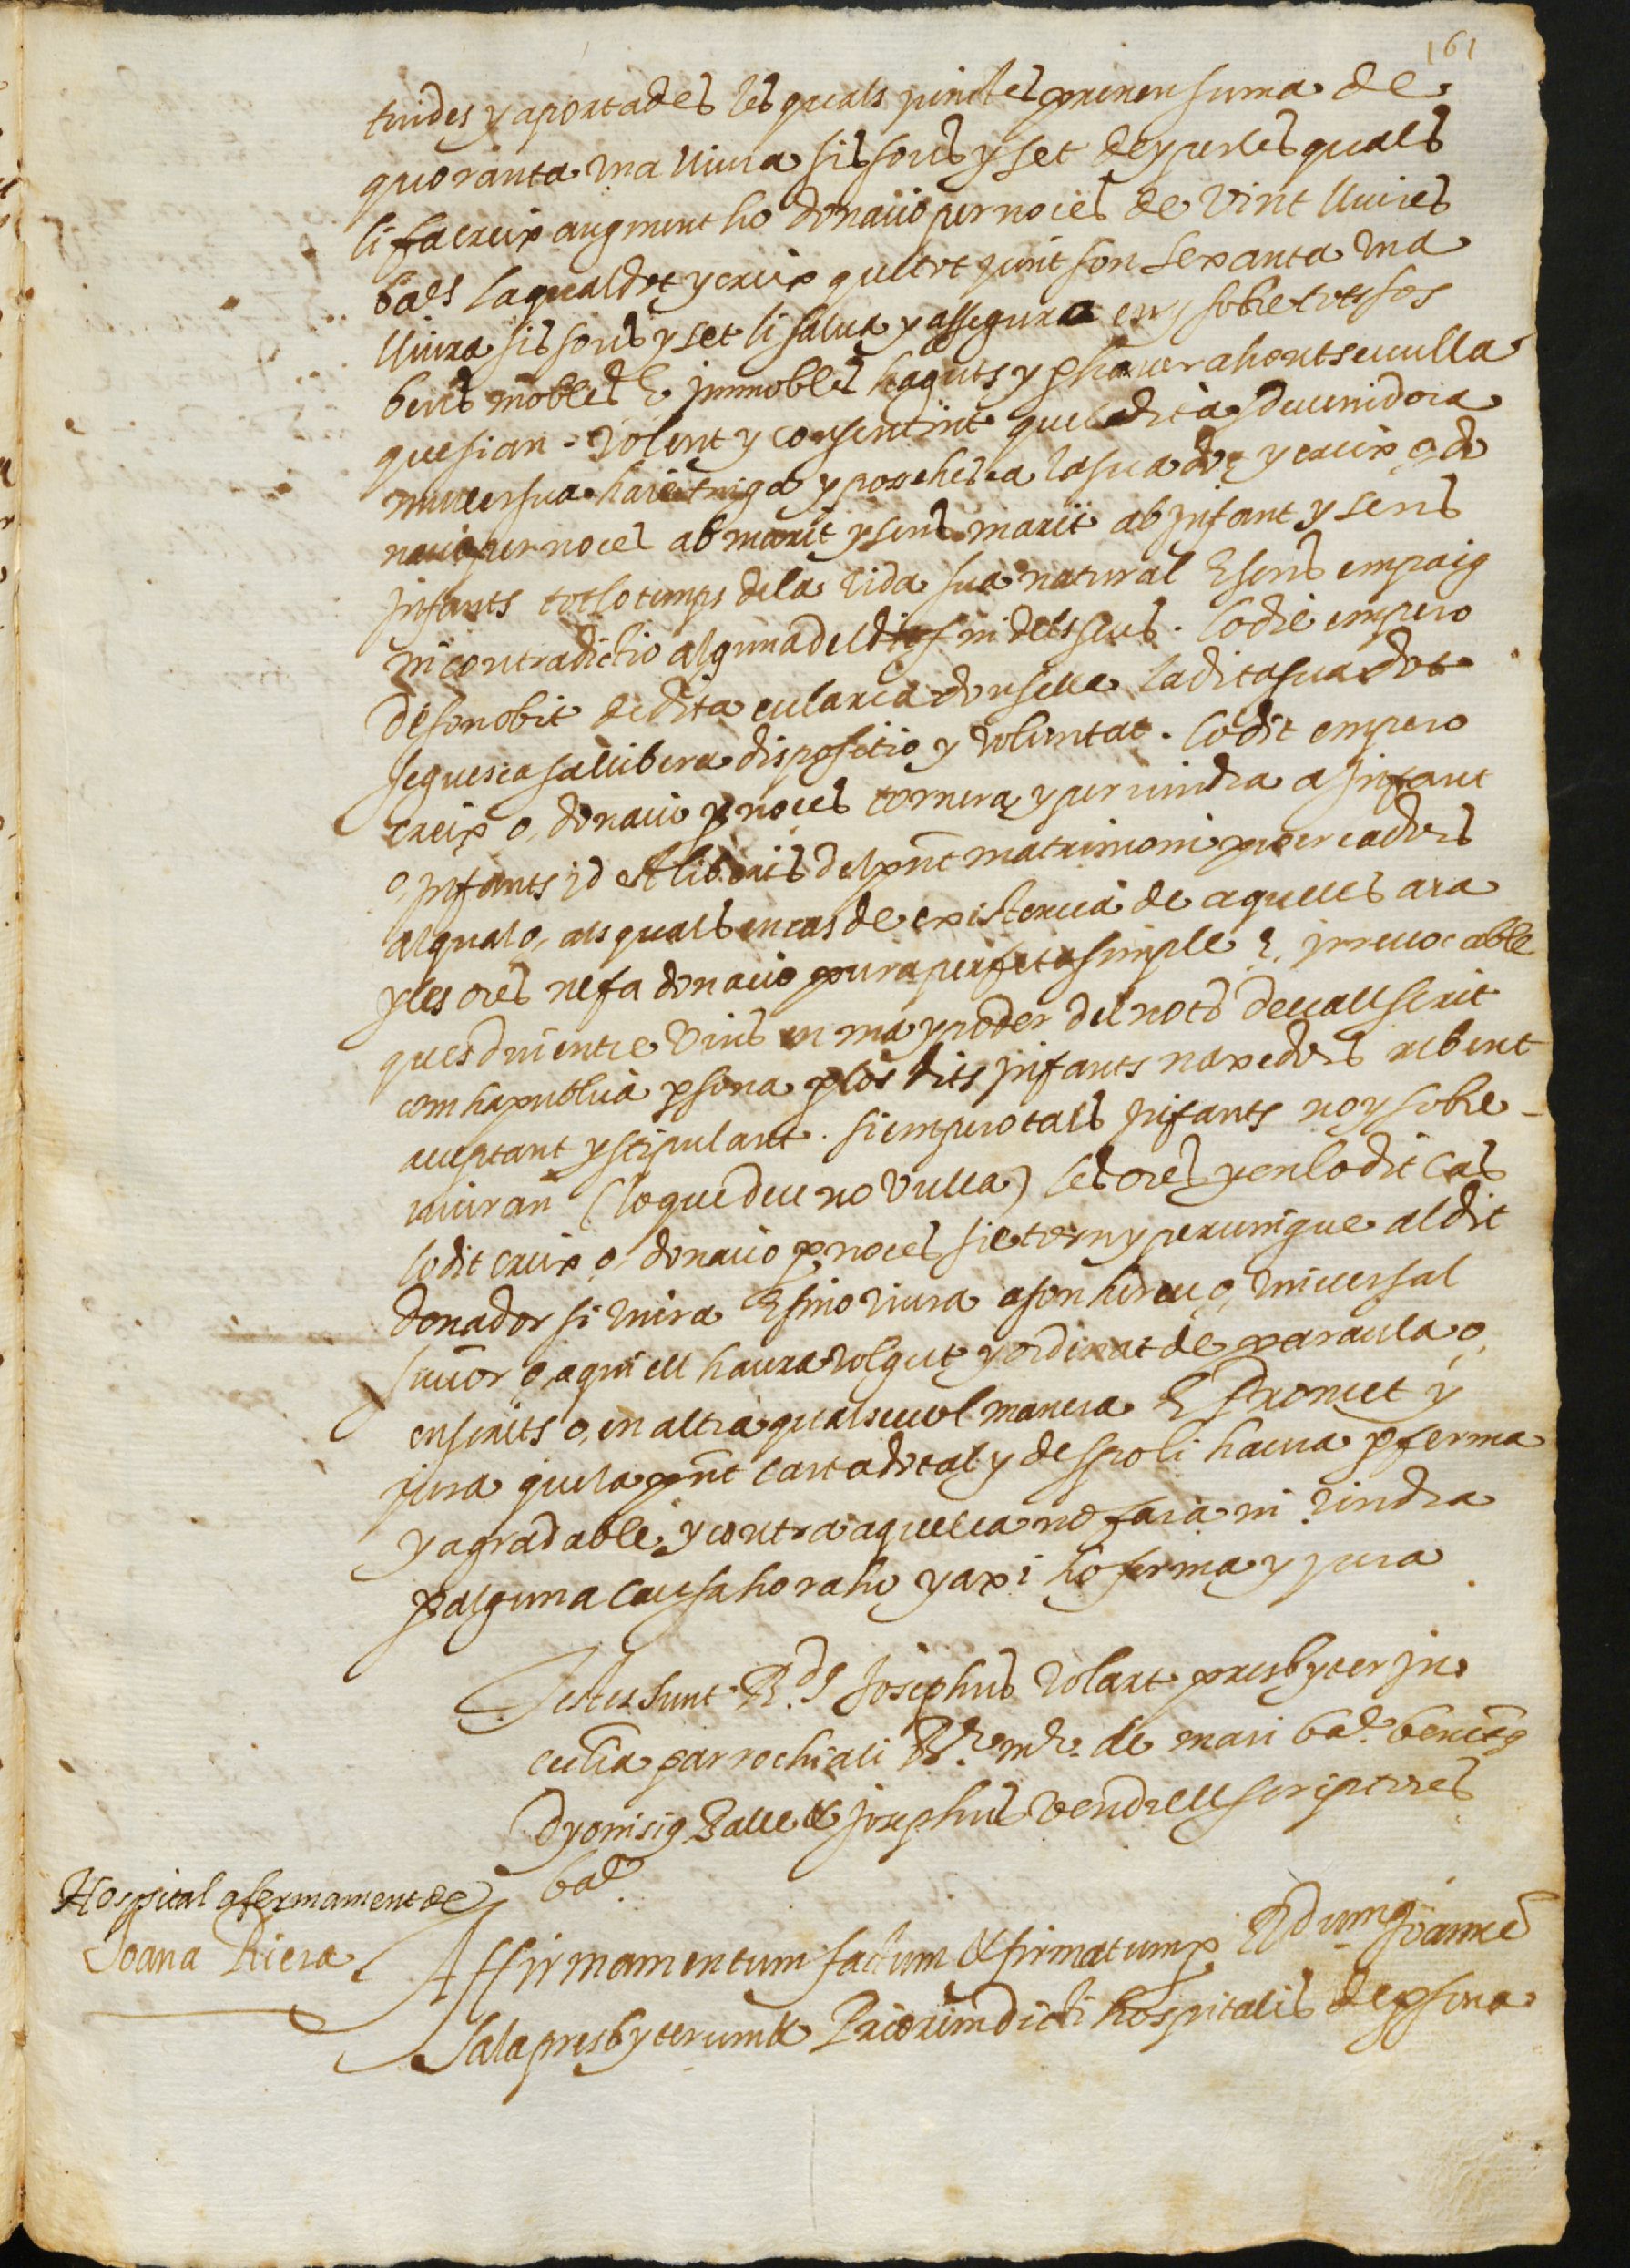 161
tuides y aportades les quals juntes prenen suma de
quoranta una lliura sis sous y set dey per les quals
li fa creix augment ho donatio per noces de vint lliures
bar.s la qual dot y creix que tot junt son sexanta una
lliura sis sous y set li salva y assegura en y sobre tots sos
bens mobles E immobles haguts y p haver ahont se vulla
que sian. Volent y consentint que la dita sdevenidora
muller sua haie tinga y possehesca la sua dot y creix o do
natio per noces ab marit y sens marit ab infant y sens
infants tot lo temps dela vida sua natural E sens empaig
ni contradictio alguna dell dits ni dels seus. Lo die empero
de son obit de dita eularia donsella la dita sua dot
seguesca sa llibera dispositio y voluntat. Lo dit empero
creix o, donatio p noces tornera y pervindra a Infant
o, infants id est liberis del pnt matrimoni procreadors
al qual o, als quals en cas de existencia de aquelles ara
y les ores ne fa donatio pura perfeta simple E irrevocable
ques diu entre vius en ma y poder del not.e devall scrit
com ha publica psona p los dits infants naxedors rebent
acceptant y stipulant. si empero tals Infants noy sobre-
viuran (lo que deu no vulla) les ores y en lo dit cas
lo dit creix o, donatio p noces sie torn y pervingue al dit
donador si viura E sino viura a son hereu o, universal
succor o, a qui ell haura volgut y ordinat de paraula o,
en scrits o, en altra qualsevol manera E promet y
jura que la pnt carta dotal y de spoli haura p ferma
y agradable y contra aquella no fara ni vindra
p alguna causa ho raho y axi ho ferma y jura
Testes sunt R.ds Josephus Volart presbyter in
ecclia parrochiali B.e m.e de mari bar.
Dyonisi9 Valle & Josephus Vendrell scriptores
bar.
Hospital afermament de
Joana Riera
Affirmamentum factum & firmatum p Rdum Joanne
Sala presbyterum & Priorem dicti hospitalis de psona